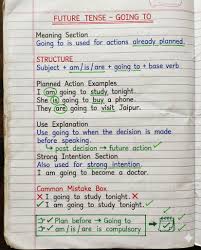 FUTURE TENSE – GOING TO
Meaning Section
Going to is used for actions already planned.
STRUCTURE
Subject + am / is / are + going to + base verb
Planned Action Examples
I am going to study tonight.
She is going to buy a phone.
They are going to visit Jaipur.
Use Explanation
Use going to when the decision is made
before speaking.
↳ past decision → future action ✓
Strong Intention Section
Also used for strong intention.
I am going to become a doctor.
Common Mistake Box
✗ I going to study tonight. ✗
✓ I am going to study tonight. ✓
✓ Plan before → Going to
✓ am / is / are is compulsory